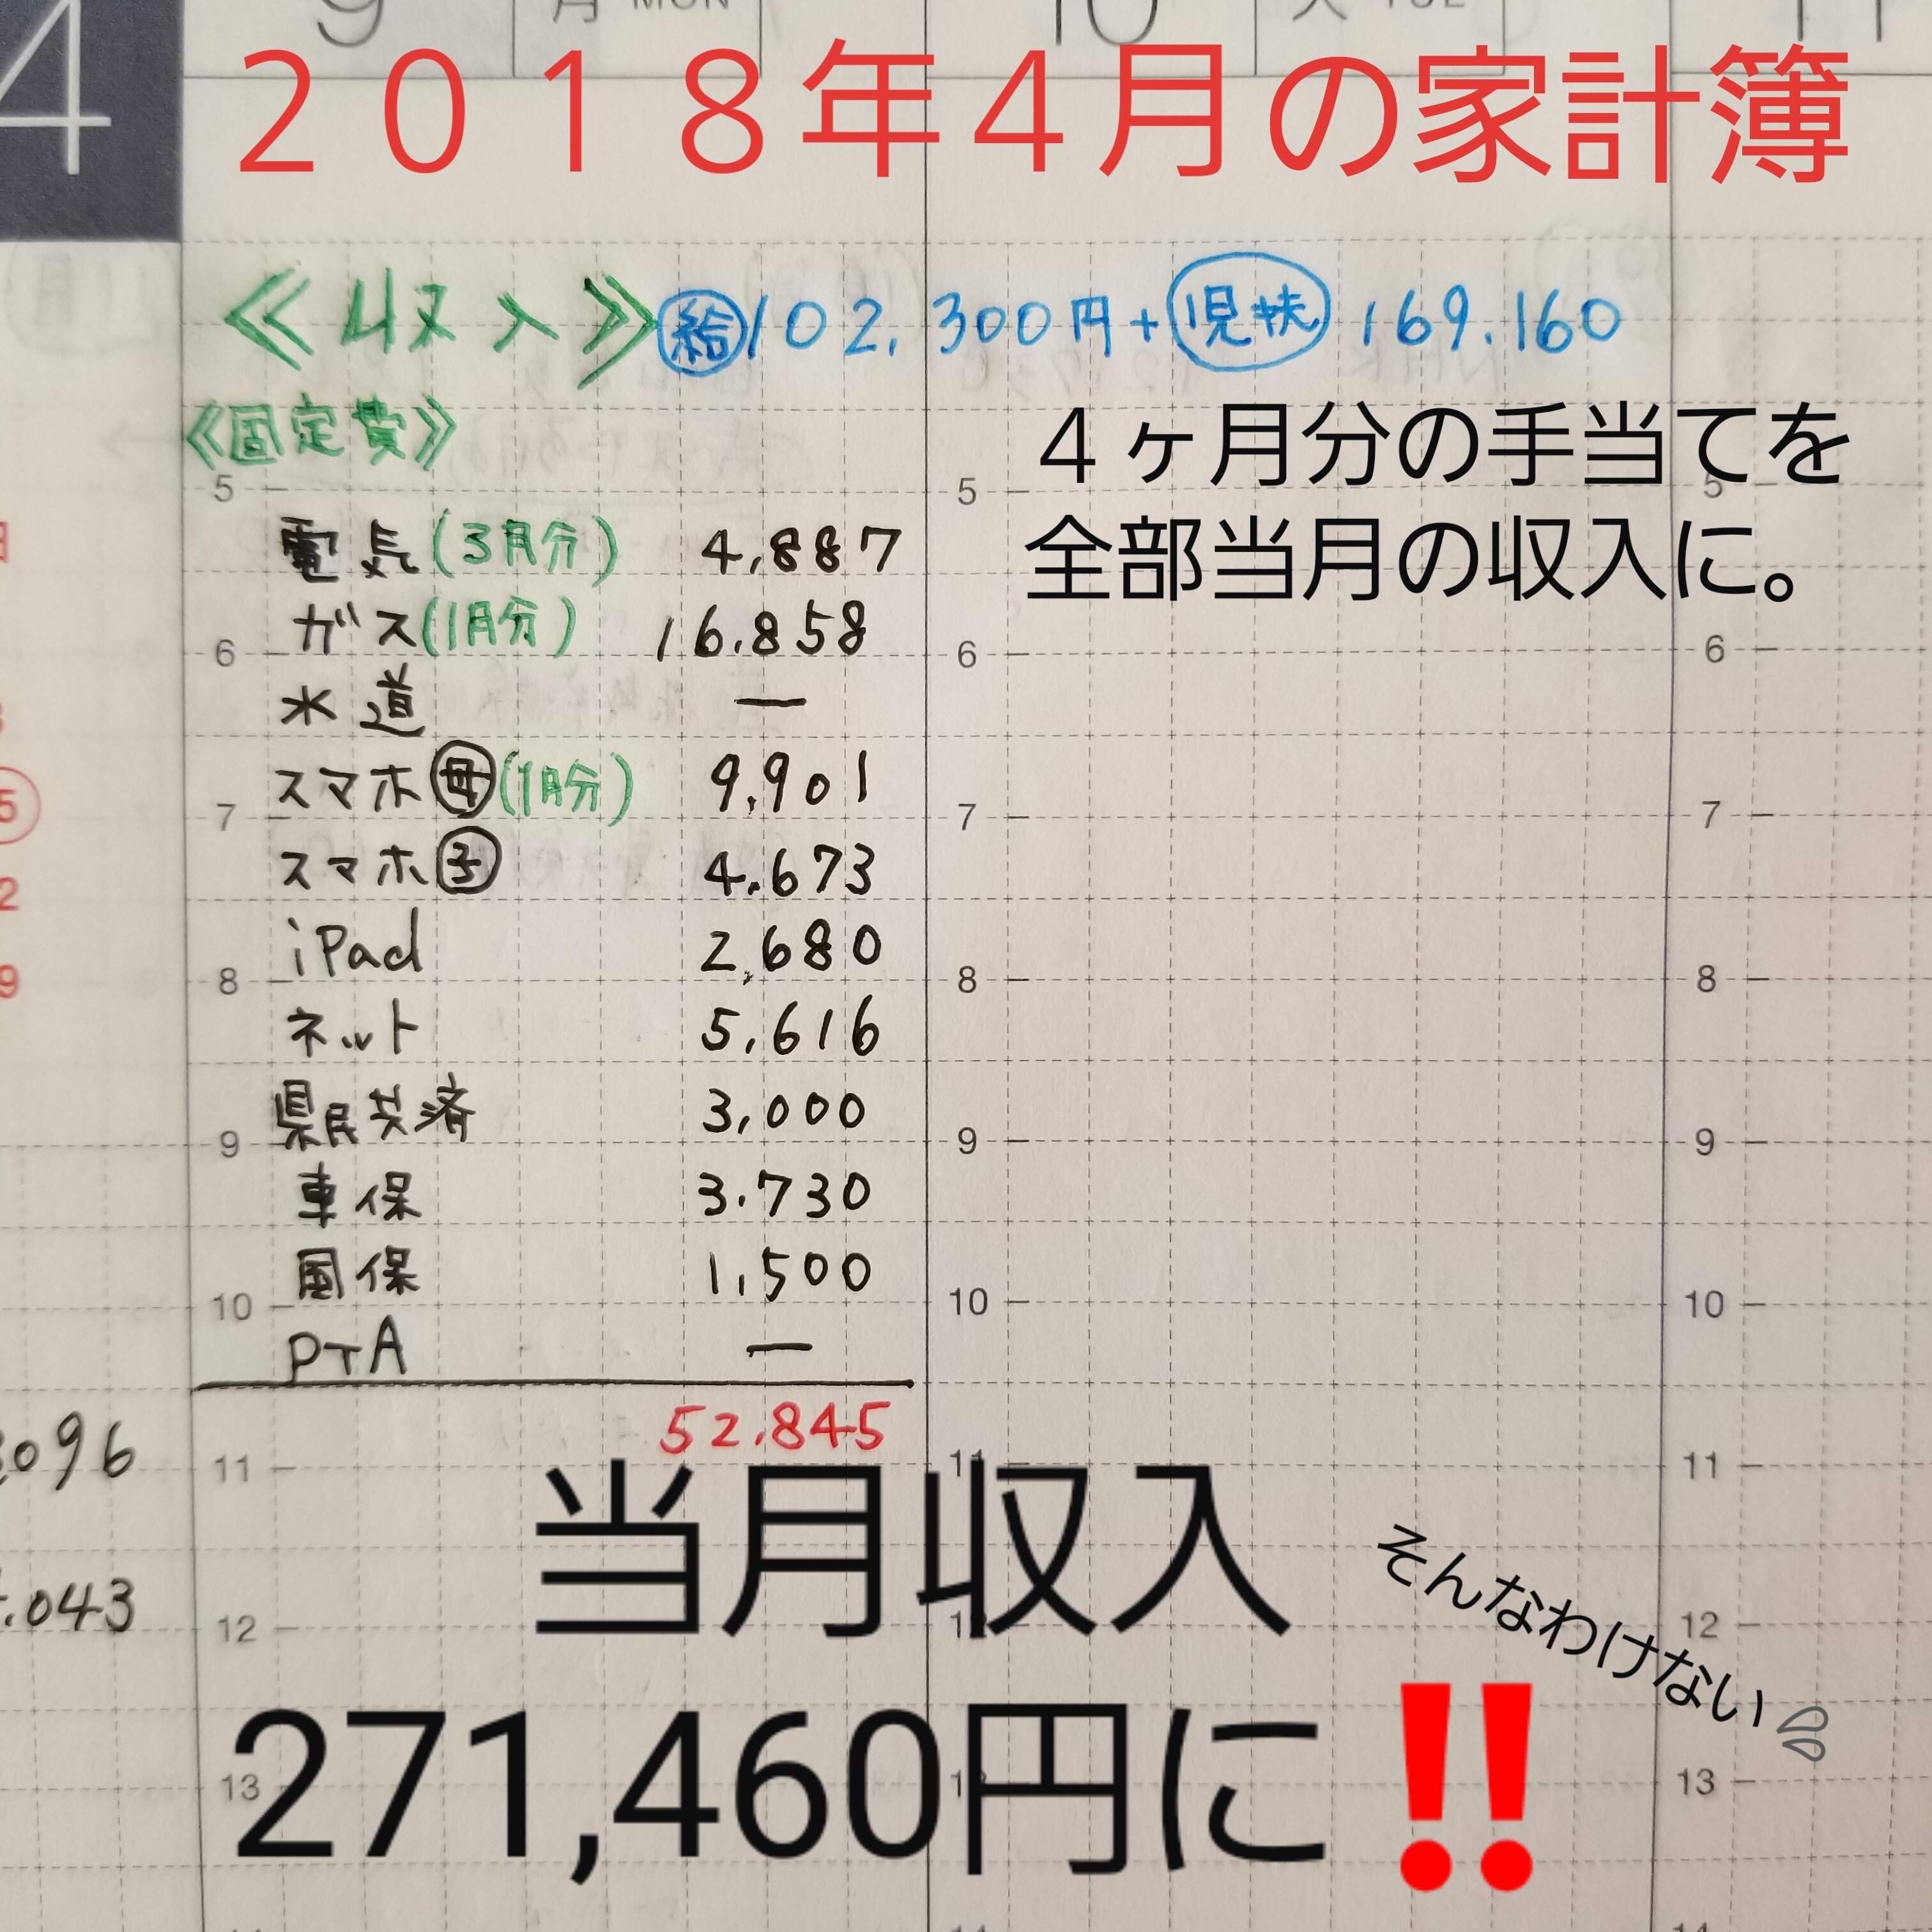 4
9 月 MON 10 火 TUE 11
2018年4月の家計簿
≪収入≫ 給 102,300円+ 児扶 169.160
≪固定費≫
4ヶ月分の手当てを
全部当月の収入に。
5 5 5
電気(3月分) 4,887
ガス(1月分) 16.858
6 6 6
水道 ー
スマホ母(1月分) 9,901
7 7 7
スマホ子 4.673
iPad 2,680
8 8 8
ネット 5,616
県民共済 3,000
9 9 9
車保 3.730
国保 1,500
10 10 10
PTA ー
52,845
096
11 11 11
当月収入
そんなわけない
.043
12 12 12
271,460円に‼
13 13 13